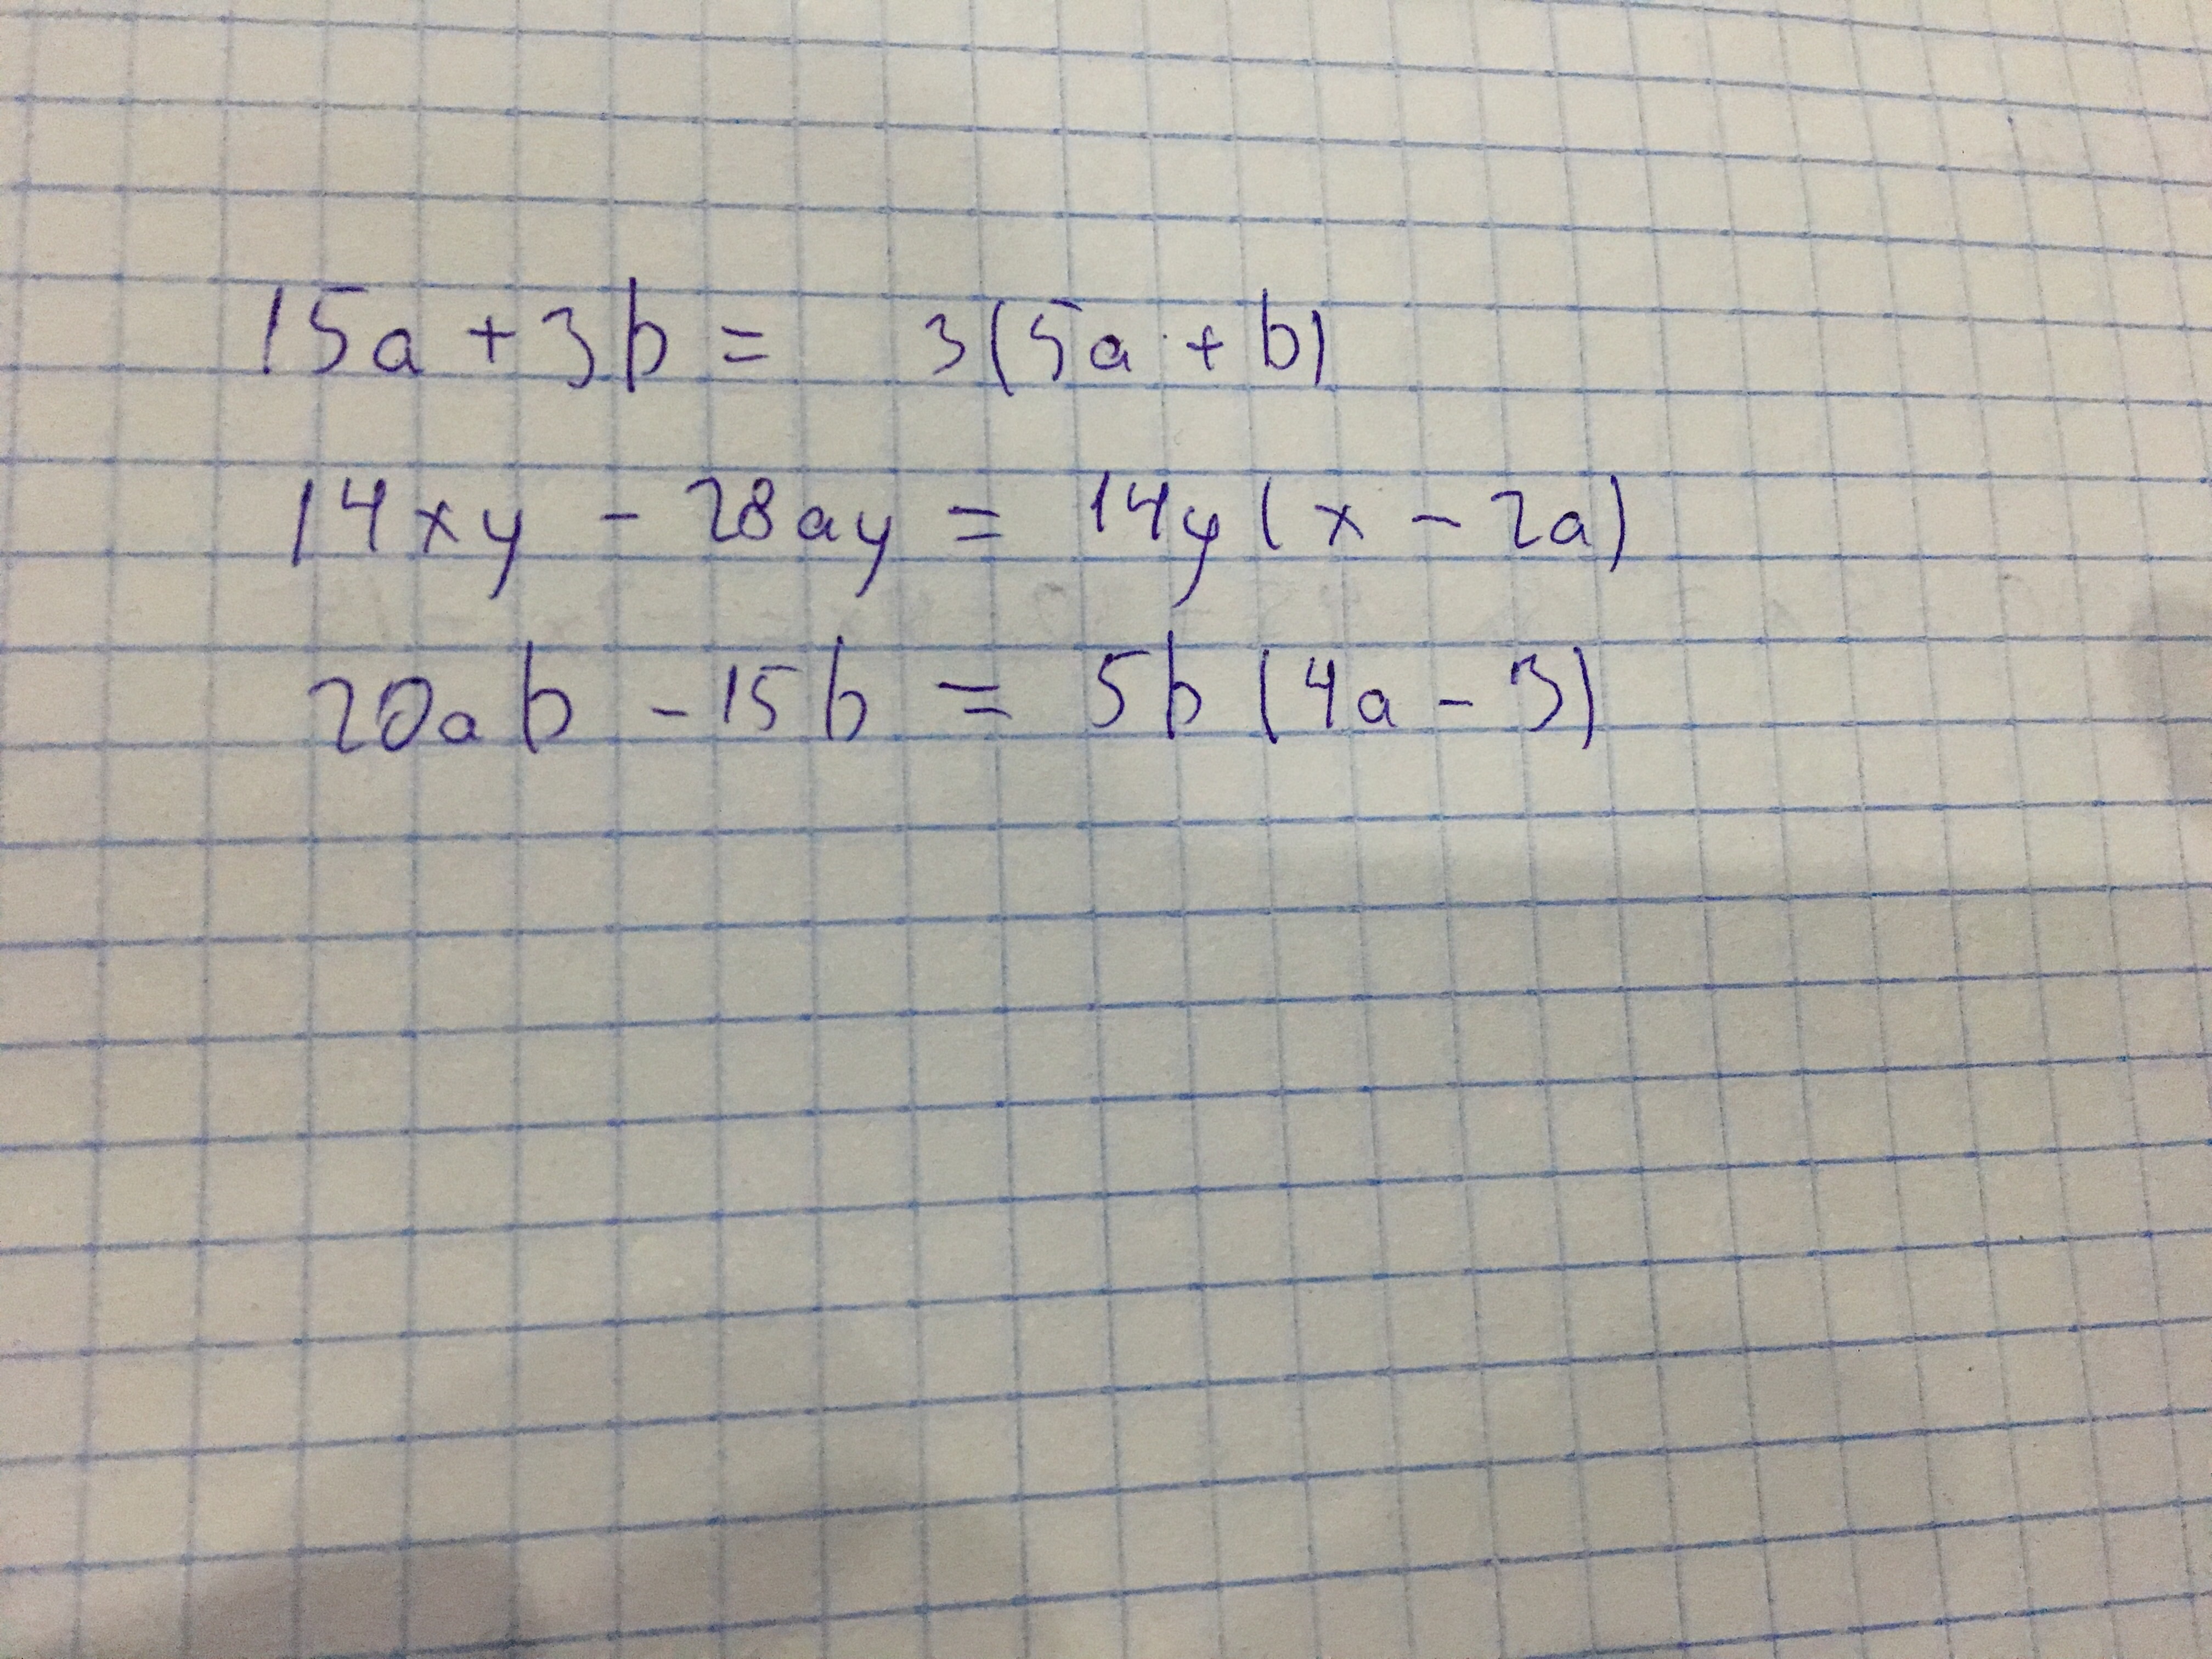 15a + 3b = 3(5a + b)
14xy - 28ay = 14y(x - 2a)
20ab - 15b = 5b(4a - 3)